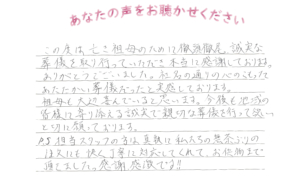 あなたの声をお聴かせください
この度は亡き祖母のために徹頭徹尾、誠実な
葬儀を取り行っていただき本当に感謝しております。
ありがとうございました。社名の通り心のこもった
あたたかい葬儀だったと実感しております。
祖母も大変喜んでいると思います。今後も地域の
皆様に寄り添える誠実で親切な葬儀を行って頂い
と切に願っております。
P.S 担当スタッフの方は真摯に私たちの無茶ぶりの
にも快く丁寧に対応してくれて、お任せまで
しました。感謝感激です!!